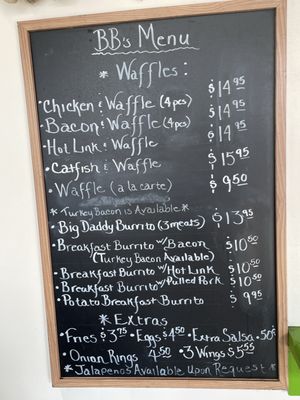 BB's Menu
* Waffles:
• Chicken & Waffle (4pcs) $14.95
• Bacon & Waffle (4pcs) $14.95
• Hot Link & Waffle $14.95
• Catfish & Waffle $15.95
• Waffle (a la carte) $9.50
* Turkey Bacon is Available *
• Big Daddy Burrito (3meats) $13.95
• Breakfast Burrito w/ Bacon $10.50
(Turkey Bacon Available)
• Breakfast Burrito w/ Hot Link $10.50
• Breakfast Burrito w/ Pulled Pork $10.50
• Potato Breakfast Burrito $9.95
* Extras
• Fries $3.75 • Eggs $4.50 • Extra Salsa .50¢
• Onion Rings 4.50 • 3 Wings $5.55
* Jalapenos Available Upon Request *